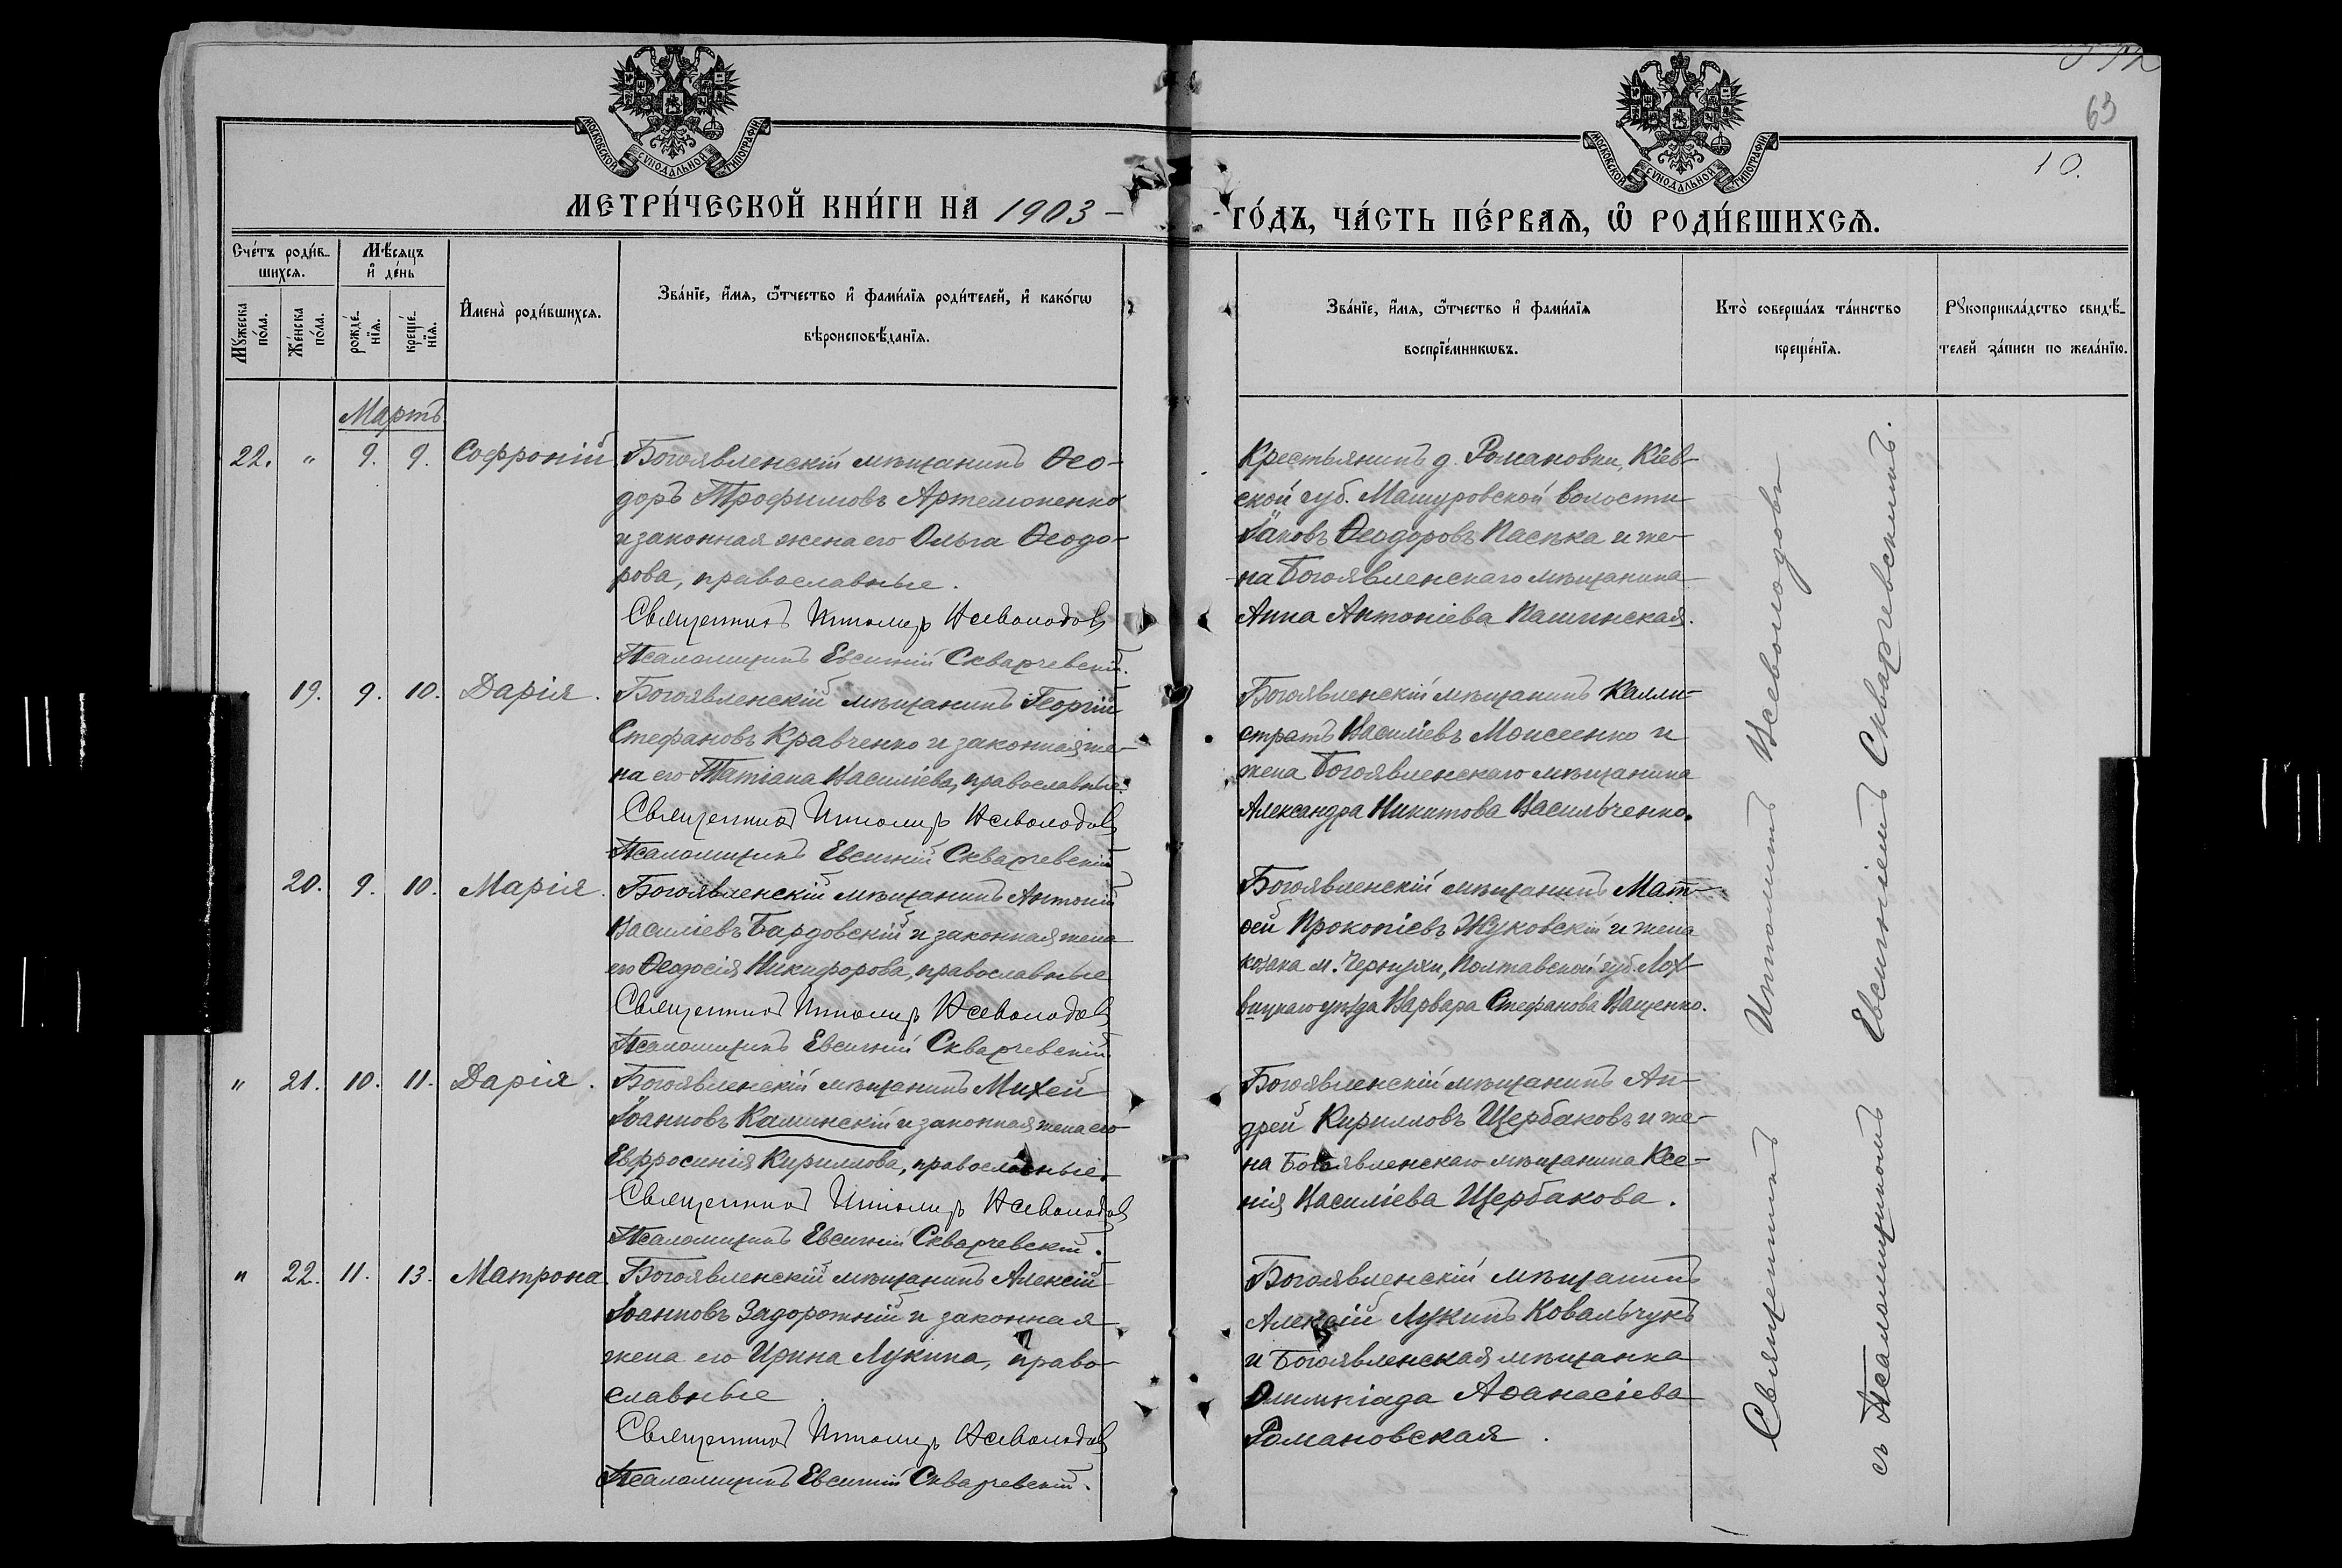 572
63
10.
МОСКОВСКОЙ СѴНОДАЛЬНОЙ ТИПОГРАФІИ
МОСКОВСКОЙ СѴНОДАЛЬНОЙ ТИПОГРАФІИ
МЕТРИ́ЧЕСКОЙ КНИ́ГИ НА 1903 –
ГО́ДЪ, ЧА́СТЬ ПЕ́РВАѦ, Ѡ҆ РОДИ́ВШИХСѦ.
Сче́тъ роди́в-
шихсѧ.
Мꙋ́жеска по́ла.
Же́нска по́ла.
Мѣ́сѧцъ
и҆ де́нь
рожде́-
нїѧ.
креще́-
нїѧ.
И҆мена̀ роди́вшихсѧ.
Зва́нїе, и҆́мѧ, ѻ҆́тчество и҆ фами́лїѧ роди́телей, и҆ како́гѡ
вѣроисповѣ́данїѧ.
Зва́нїе, и҆́мѧ, ѻ҆́тчество и҆ фами́лїѧ
воспрїе́мникѡвъ.
Кто̀ соверша́лъ та́инство
креще́нїѧ.
Рꙋкоприкла́дство свидѣ́-
телей за́писи по жела́нїю.
Мартъ
22. " 9. 9. Софроній
Богоявленскій мѣщанинъ Ѳео-
доръ Трофимовъ Артемоненко
и законная жена его Ольга Ѳеодо-
рова, православные.
Священникъ Ипполитъ Всеволодовъ
Псаломщикъ Евсигній Скварчевскій.
Крестьянинъ д. Романовки, Кіев-
ской губ. Машуровской волости
Іаковъ Ѳеодоровъ Пасѣка и же-
на Богоявленскаго мѣщанина
Анна Антоніева Пашинская.
19. 9. 10. Дарія.
Богоявленскій мѣщанинъ Георгій
Стефановъ Кравченко и законная же-
на его Татіана Василіева, православные.
Священникъ Ипполитъ Всеволодовъ
Псаломщикъ Евсигній Скварчевскій
Богоявленскій мѣщанинъ Калли-
стратъ Василіевъ Моисеенко и
жена Богоявленскаго мѣщанина
Александра Никитова Васильченко.
20. 9. 10. Марія.
Богоявленскій мѣщанинъ Антоній
Василіевъ Бардовскій и законная жена
его Ѳеодосія Никифорова, православные
Священникъ Ипполитъ Всеволодовъ
Псаломщикъ Евсигній Скварчевскій
Богоявленскій мѣщанинъ Мат-
ѳей Прокопіевъ Жуковскій и жена
козака м. Чернухи, Полтавской губ. Лох-
вицкаго уѣзда Варвара Стефанова Ващенко.
" 21. 10. 11. Дарія.
Богоявленскій мѣщанинъ Михей
Іоанновъ Кашинскій и законная жена его
Евфросинія Кириллова, православные.
Священникъ Ипполитъ Всеволодовъ
Псаломщикъ Евсигній Скварчевскій.
Богоявленскій мѣщанинъ Ан-
дрей Кирилловъ Щербаковъ и же-
на Богоявленскаго мѣщанина Ксе-
нія Василіева Щербакова.
" 22. 11. 13. Матрона.
Богоявленскій мѣщанинъ Алексій
Іоанновъ Задорожній и законная
жена его Ирина Лукина, право-
славные
Священникъ Ипполитъ Всеволодовъ
Псаломщикъ Евсигній Скварчевскій.
Богоявленскій мѣщанинъ
Алексій Лукинъ Ковальчукъ
и Богоявленская мѣщанка
Олимпіада Аѳанасіева
Романовская.
Священникъ Ипполитъ Всеволодовъ
съ Псаломщикомъ Евсигніемъ Скварчевскимъ.